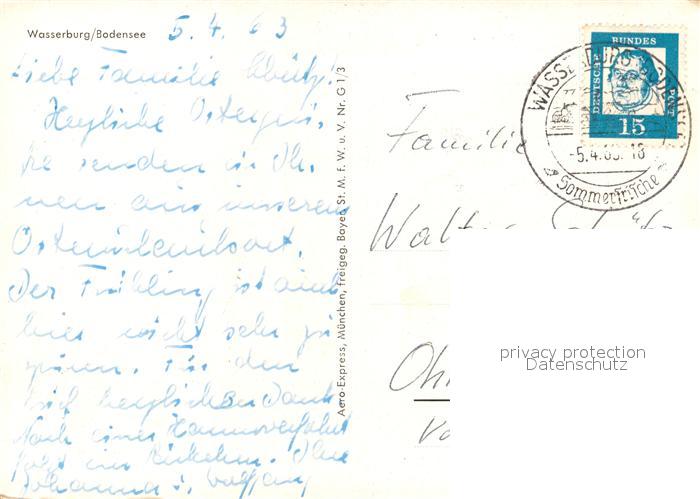 Wasserburg/Bodensee
5.4.63
Liebe Familie
Herzliche Ostergrü-
ße senden wir Ih-
nen aus unserem
Osterurlaubsort.
Der Frühling ist auch
hier nicht sehr zu
spüren. Für den
Brief herzlichen Dank
Nach einer Hannoverfahrt
folgt ein Ihre
Johanna u. Wolfgang
Aero-Express, München, freigeg. Bayer. St. M. f. W. u. V. Nr. G 1/3
DEUTSCHE
BUNDES
POST
15
WASSERBURG BODENSEE
-5.4.63.-18
Sommerfrische
Familie
Walter
privacy protection
Datenschutz